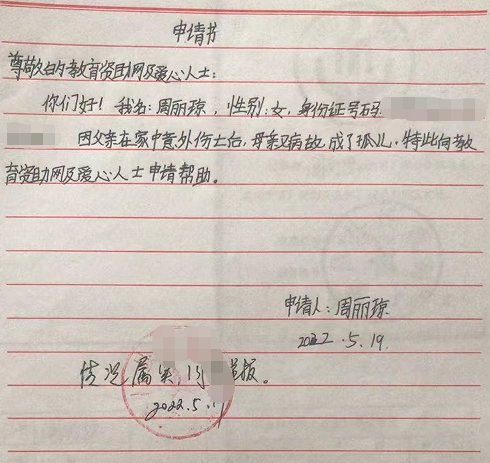 申请书
尊敬的教育资助网及爱心人士:
你们好！我名:周丽琼，性别:女，身份证号码
因父亲在家中意外伤亡后，母亲又病故，成了孤儿，特此向教
育资助网及爱心人士申请帮助。
申请人:周丽琼
2022.5.19
情况属实，报。
2022.5.